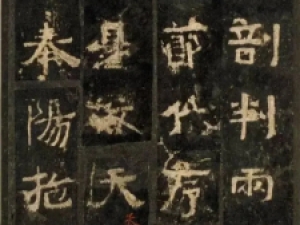 剖判兩
節代序
是故天
奉陽施